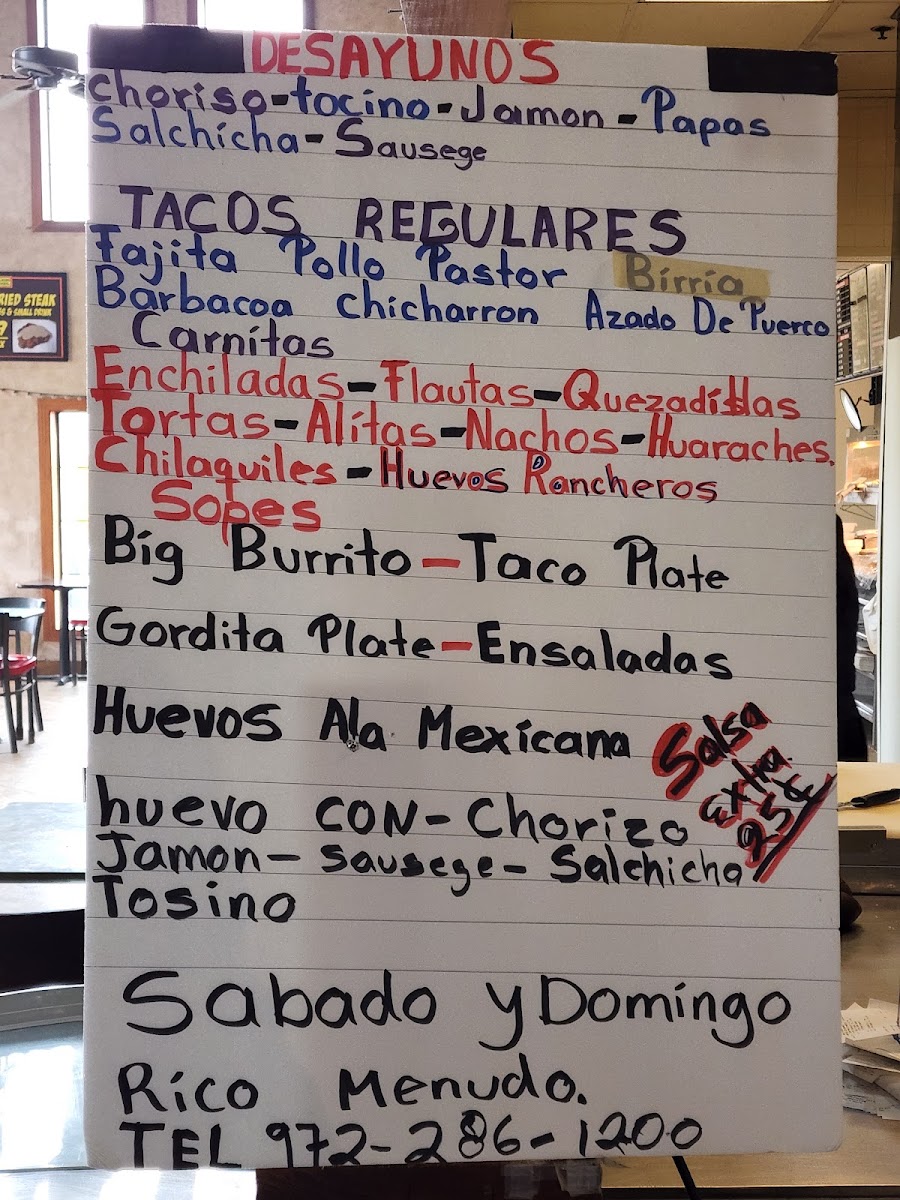 DESAYUNOS
choriso-tocino-Jamon-Papas
Salchicha-Sausege
TACOS REGULARES
Fajita Pollo Pastor Birria
Barbacoa chicharron Azado De Puerco
Carnitas
Enchiladas-Flautas-Quezadillas
Tortas-Alitas-Nachos-Huaraches.
Chilaquiles-Huevos Rancheros
Sopes
Big Burrito-Taco Plate
Gordita Plate-Ensaladas
Huevos Ala Mexicana
Salsa
extra
25¢
huevo CON-Chorizo
Jamon-sausege-Salchicha
Tosino
Sabado y Domingo
Rico Menudo.
TEL 972-286-1200
RIED STEAK
& SMALL DRINK